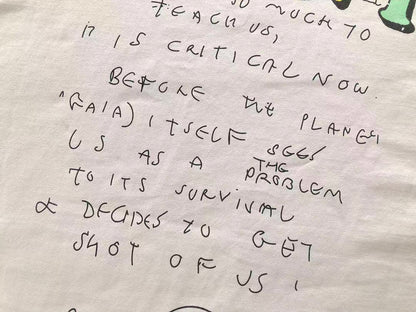 SO MUCH TO
TEACH US,
IT IS CRITICAL NOW.
BEFORE THE PLANET
(GAIA) ITSELF SEES
US AS A THE PROBLEM
TO ITS SURVIVAL
& DECIDES TO GET
SHOT OF US !